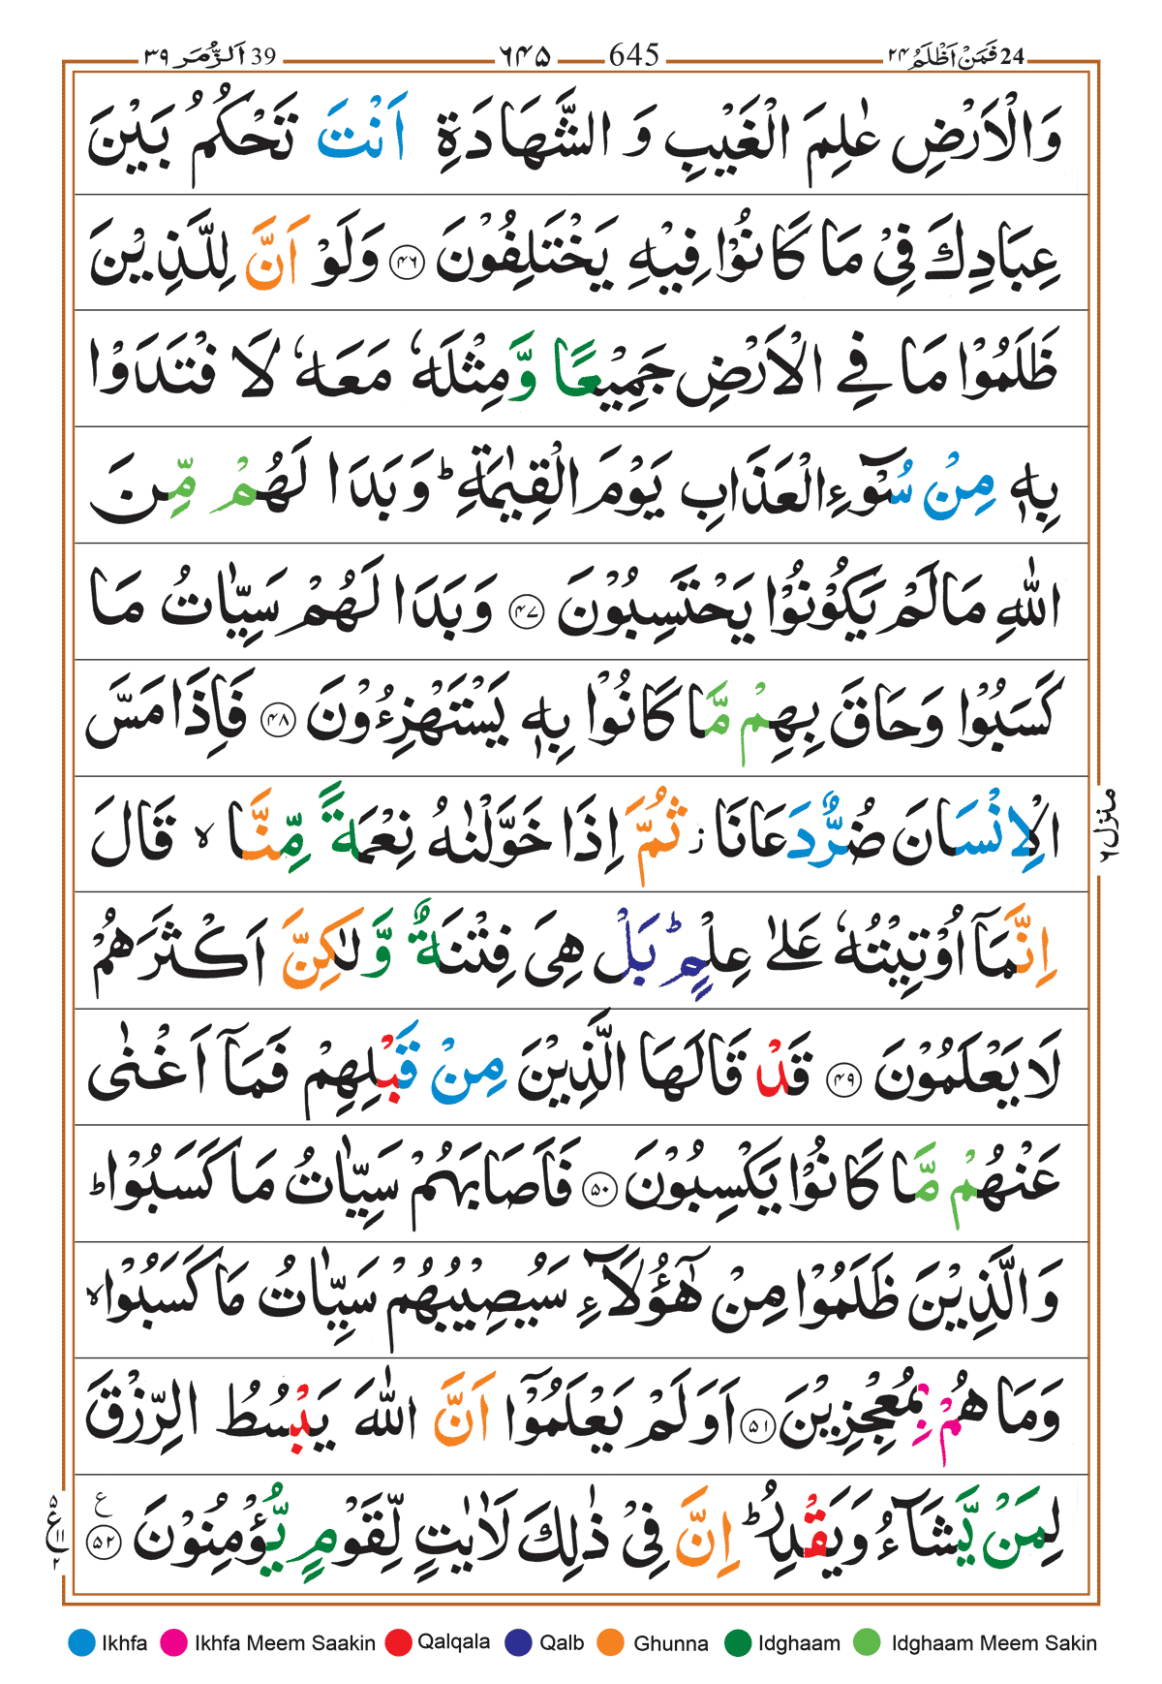 24 فَمَنْ اَظْلَمُ ۲۴ 645 ۶۴۵ 39 اَلزُّمَر ۳۹
وَالْاَرْضِ عٰلِمَ الْغَيْبِ وَ الشَّهَادَةِ اَنْتَ تَحْكُمُ بَيْنَ
عِبَادِكَ فِيْ مَا كَانُوْا فِيْهِ يَخْتَلِفُوْنَ ۴۶ وَلَوْ اَنَّ لِلَّذِيْنَ
ظَلَمُوْا مَا فِي الْاَرْضِ جَمِيْعًا وَّمِثْلَهٗ مَعَهٗ لَا فْتَدَوْا
بِهٖ مِنْ سُوْٓءِ الْعَذَابِ يَوْمَ الْقِيٰمَةِ ؕ وَبَدَا لَهُمْ مِّنَ
اللّٰهِ مَا لَمْ يَكُوْنُوْا يَحْتَسِبُوْنَ ۴۷ وَبَدَا لَهُمْ سَيِّاٰتُ مَا
كَسَبُوْا وَحَاقَ بِهِمْ مَّا كَانُوْا بِهٖ يَسْتَهْزِءُوْنَ ۴۸ فَاِذَا مَسَّ
الْاِنْسَانَ ضُرٌّ دَعَانَا ز ثُمَّ اِذَا خَوَّلْنٰهُ نِعْمَةً مِّنَّا ۙ قَالَ
اِنَّمَآ اُوْتِيْتُهٗ عَلٰى عِلْمٍ ؕ بَلْ هِيَ فِتْنَةٌ وَّلٰكِنَّ اَكْثَرَهُمْ
لَا يَعْلَمُوْنَ ۴۹ قَدْ قَالَهَا الَّذِيْنَ مِنْ قَبْلِهِمْ فَمَآ اَغْنٰى
عَنْهُمْ مَّا كَانُوْا يَكْسِبُوْنَ ۵۰ فَاَصَابَهُمْ سَيِّاٰتُ مَا كَسَبُوْا ؕ
وَالَّذِيْنَ ظَلَمُوْا مِنْ هٰٓؤُلَآءِ سَيُصِيْبُهُمْ سَيِّاٰتُ مَا كَسَبُوْا ۙ
وَمَا هُمْ بِمُعْجِزِيْنَ ۵۱ اَوَلَمْ يَعْلَمُوْٓا اَنَّ اللّٰهَ يَبْسُطُ الرِّزْقَ
لِمَنْ يَّشَآءُ وَيَقْدِرُ ؕ اِنَّ فِيْ ذٰلِكَ لَاٰيٰتٍ لِّقَوْمٍ يُّؤْمِنُوْنَ ۵۲ ع
منزل ۶
۵ ع ۱۱ ۲
Ikhfa Ikhfa Meem Saakin Qalqala Qalb Ghunna Idghaam Idghaam Meem Sakin